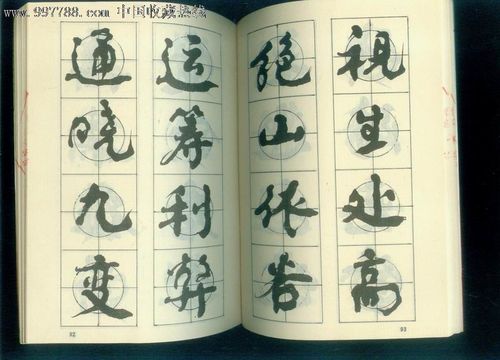 www.997788.com 中国收藏热线
通晓九变
运筹利弊
92
绝山依谷
视生处高
93